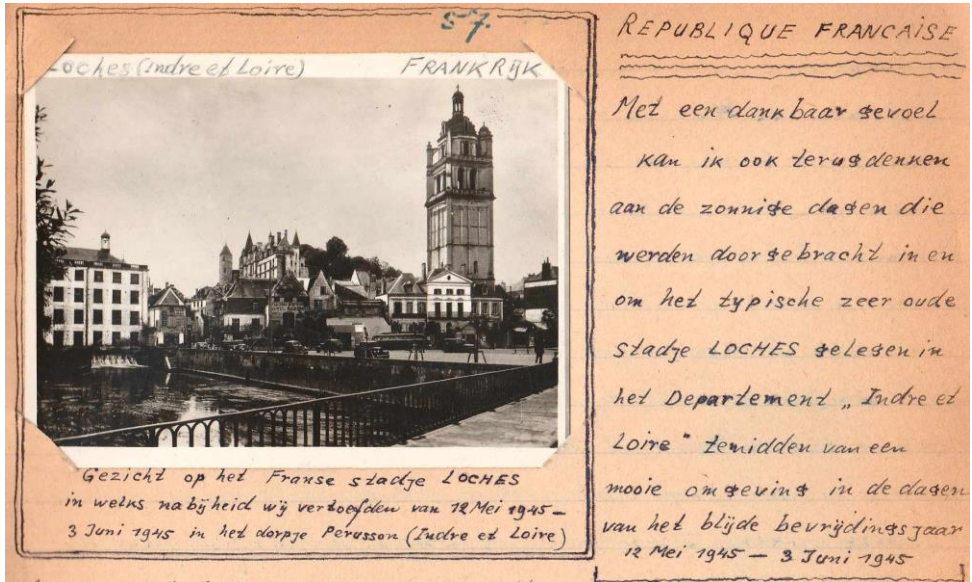 57.
Loches (Indre et Loire) FRANKRIJK
Gezicht op het Franse stadje LOCHES
in welks nabijheid wij vertoefden van 12 Mei 1945 –
3 Juni 1945 in het dorpje Perusson (Indre et Loire)
REPUBLIQUE FRANCAISE
Met een dankbaar gevoel
kan ik ook terugdenken
aan de zonnige dagen die
werden doorgebracht in en
om het typische zeer oude
stadje LOCHES gelegen in
het Departement „Indre et
Loire" temidden van een
mooie omgeving in de dagen
van het blijde bevrijdingsjaar
12 Mei 1945 – 3 Juni 1945